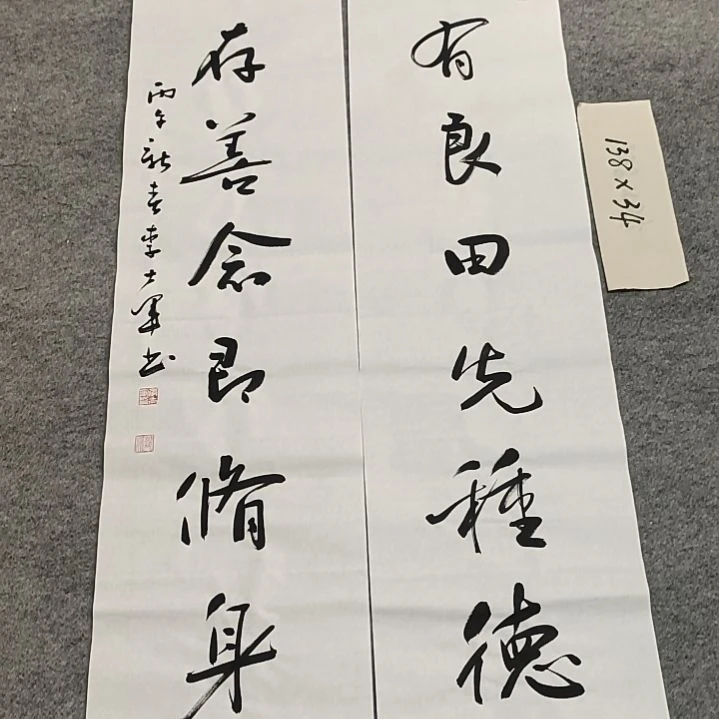 有良田先種德
存善念即脩身
丙午新春李大軍书
138×34